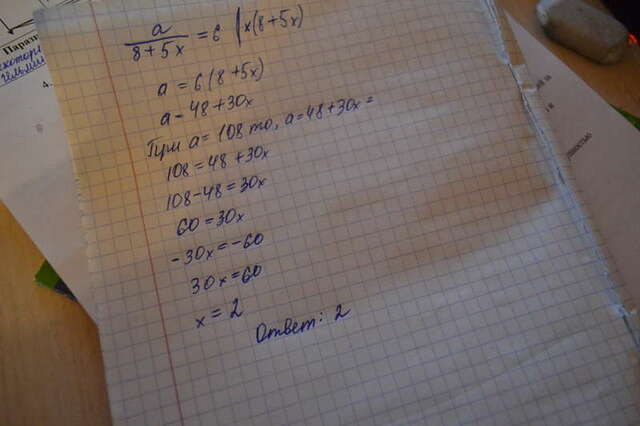 a/(8+5x) = 6 | x(8+5x)
a = 6(8+5x)
a = 48+30x
При a = 108 то, a = 48+30x =
108 = 48 + 30x
108-48 = 30x
60 = 30x
-30x = -60
30x = 60
x = 2
Ответ: 2